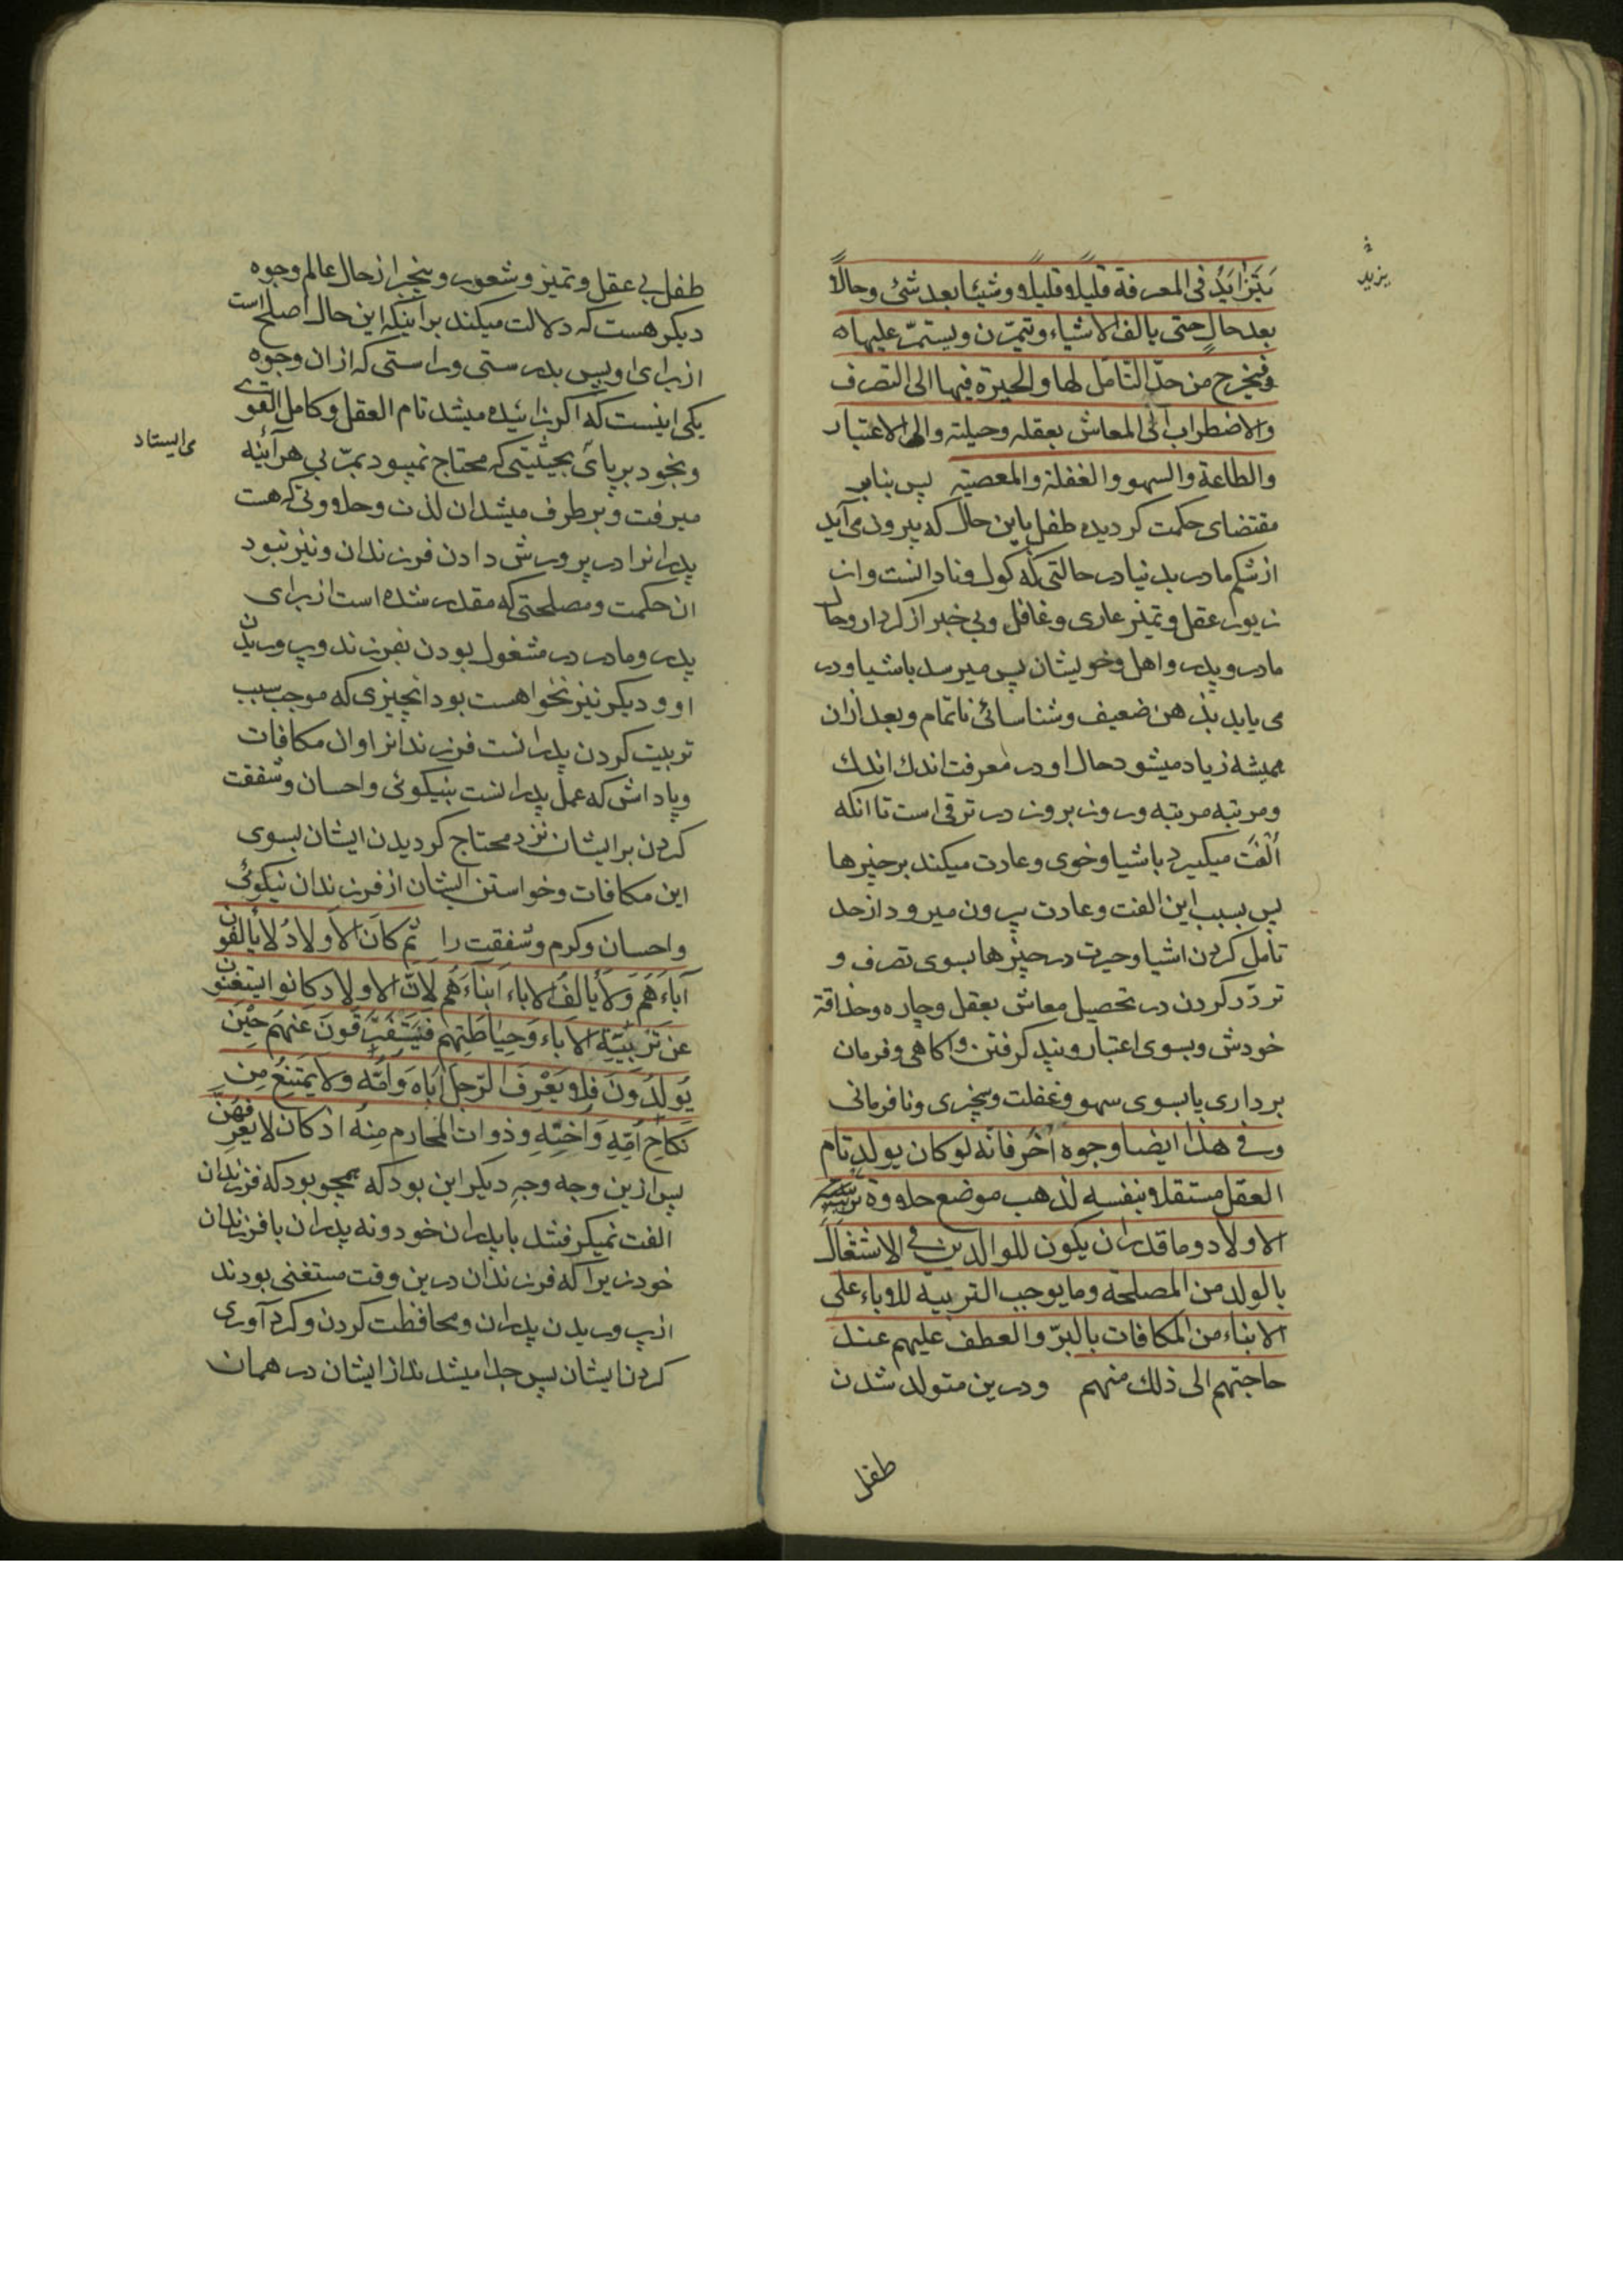 يتزايد في المعرفة قليلا قليلا وشيئا بعد شئ وحالا
بعد حال حتى يالف الاشياء ويتمرن ويستمر عليها
فيخرج من حد التامل لها والحيرة فيها الى التصرف
والاضطراب الى المعاش بعقله وحيلته والى الاعتبار
والطاعة والسهو والغفلة والمعصية پس بنابر
مقتضای حکمت کردیده طفل باین حال که بیرون می آید
از شکم مادر بدنیا در حالتی که کول و نادانست و از
زیور عقل و تمیز عاری و غافل و بی خبر از کردار و حال
مادر و پدر و اهل و خویشان پس میرسد باشیا و در
می یابد بذهن ضعیف و شناسائی ناتمام و بعد ازان
همیشه زیاد میشود حال او در معرفت اندك اندك
و مرتبه مرتبه و روز بروز در ترقی است تا انکه
اُلفَت میکیرد باشیا و خوی و عادت میکند بر چیزها
پس بسبب این الفت و عادت بیرون میرود از حد
تامل کردن اشیا و حیرت در چیزها بسوی تصرف و
تردّد کردن در تحصیل معاش بعقل و چاره و حذاقة
خودش و بسوی اعتبار و پند کرفتن و اکاهی و فرمان
برداری یا بسوی سهو و غفلت و بیخبری و نافرمانی
وفي هذا ايضا وجوه اُخَر فانّه لو كان يولد تام
العقل مستقلا بنفسه لذهب موضع حلاوة تربية
الاولاد وما قدر ان يكون للوالدين في الاشتغال
بالولد من المصلحة وما يوجب التربية للاباء على
الابناء من المكافات بالبرّ والعطف عليهم عند
حاجتهم الى ذلك منهم و درین متولد شدن
طفل
یزید
طفل بی عقل و تمیز و شعور و بیخبر از حال عالم وجوه
دیکر هست که دلالت میکند بر اینکه این حال اصلح است
از برای او پس بدرستی و راستی که ازان وجوه
یکی اینست که اکر زائیده میشد تام العقل و کامل القوی
و بخود بر پای بحیثیتی که محتاج نمیبود بمربی هرآئینه
می ایستاد
میرفت و برطرف میشد ان لذت و حلاوتی که هست
پدرانرا در پرورش دادن فرزندان و نیز نبود
ان حکمت و مصلحتی که مقدر شده است از برای
پدر و مادر در مشغول بودن بفرزند و پروریدن
او و دیکر نیز نخواهست بود انچیزی که موجب سبب
تربیت کردن پدرانست فرزندانرا و ان مکافات
و پاداش که عمل پدرانست بنیکوئی و احسان و شفقت
کردن بر ایشان نزد محتاج کردیدن ایشان بسوی
این مکافات و خواستن ایشان از فرزندان نیکوئی
و احسان و کرم و شفقت را ثُمّ كانَ الاَولادُ لا يَالَفون
آباءَهُم وَلا يالَفُ الاباء اَبناءَهُم لِانّ الاولاد كانوا يستغنون
عن تَربِيَةِ الاباء وَحِياطَتِهم فَيَتَفَرَّقونَ عَنهُم حينَ
يُولَدُونَ فلا يَعْرِفُ الرّجل اَباهُ وَاُمّه ولا يَمتَنِعُ مِن
نكاح اُمِّهِ وَاُختِهِ وذوات المحارم مِنهُ اذ كان لا يَعرِفهنّ
پس ازین وجه وجهِ دیکر این بود که همچو بود که فرزندان
الفت نمیکرفتند با پدران خود و نه پدران با فرزندان
خود زیرا که فرزندان درین وقت مستغنی بودند
از پروریدن پدران و محافظت کردن و کرد آوری
کردن ایشان پس جدا میشدند از ایشان در همان